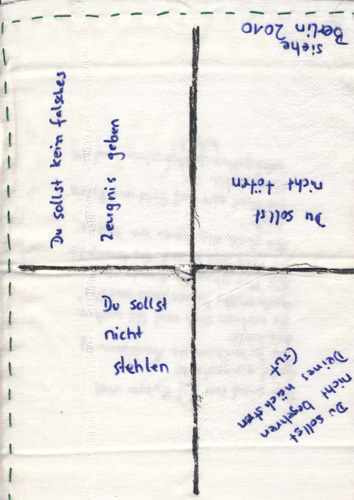 Du sollst kein falsches
Zeugnis geben
siehe
Berlin 2010
Du sollst
nicht töten
Du sollst
nicht
stehlen
Du sollst
nicht begehren
Deines nächsten
Gut